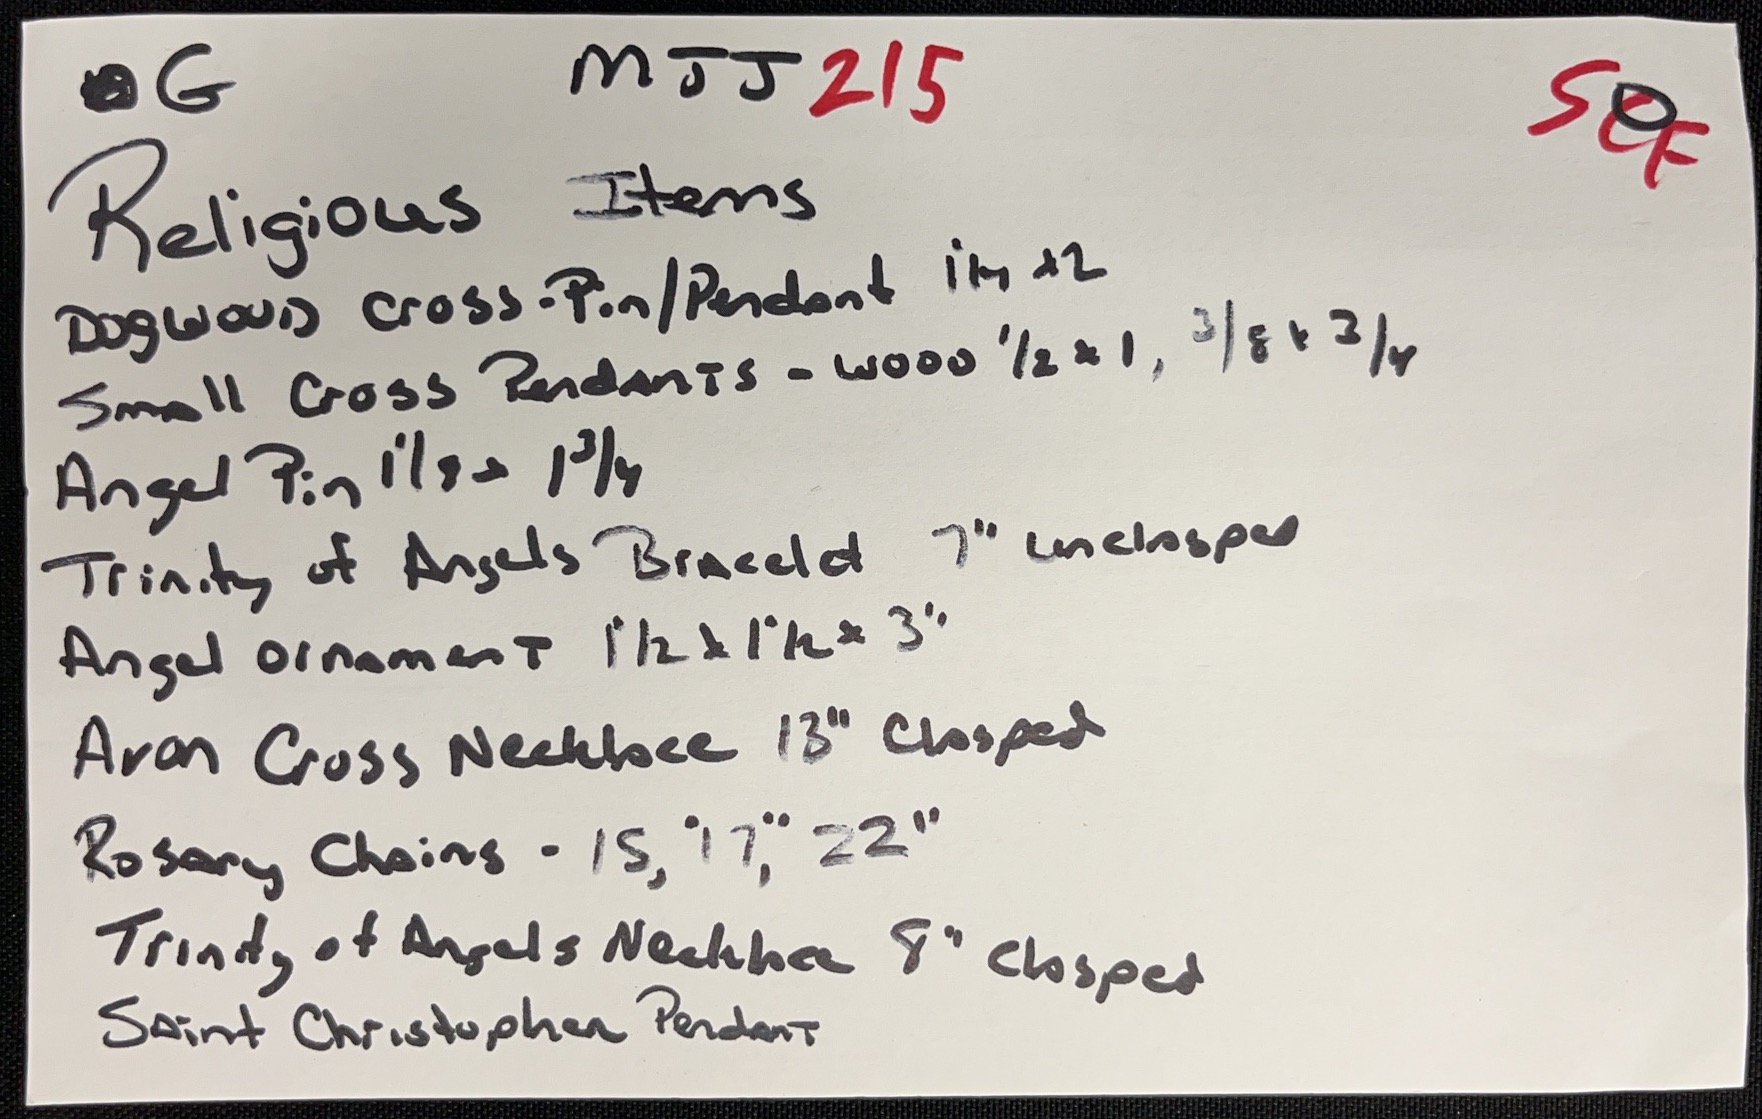 G MJJ215
Religious Items
Dogwood Cross-Pin/Pendant 1 1/4 x 2
Small Cross Pendants - wood 1/2 x 1, 3/8 x 3/4
Angel Pin 1 1/8 x 1 3/4
Trinity of Angels Bracelet 7" unclasped
Angel ornament 1 1/2 x 1 1/2 x 3"
Avon Cross Necklace 13" Clasped
Rosary Chains - 15," 17," 22"
Trinity of Angels Necklace 8" Clasped
Saint Christopher Pendant